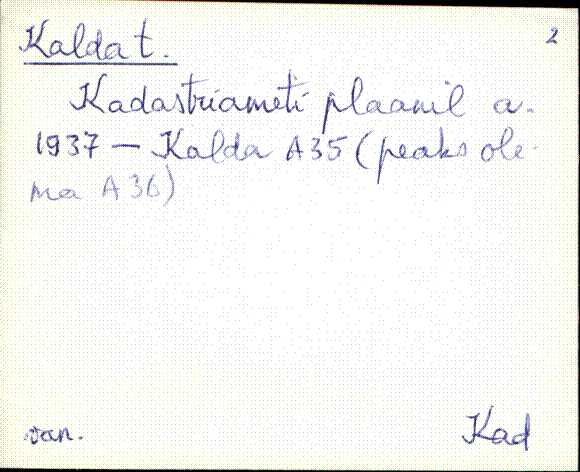 Kalda t. 2
Kadastriameti plaanil a.
1937 — Kalda A35 (peaks ole-
ma A36)
van. Kad